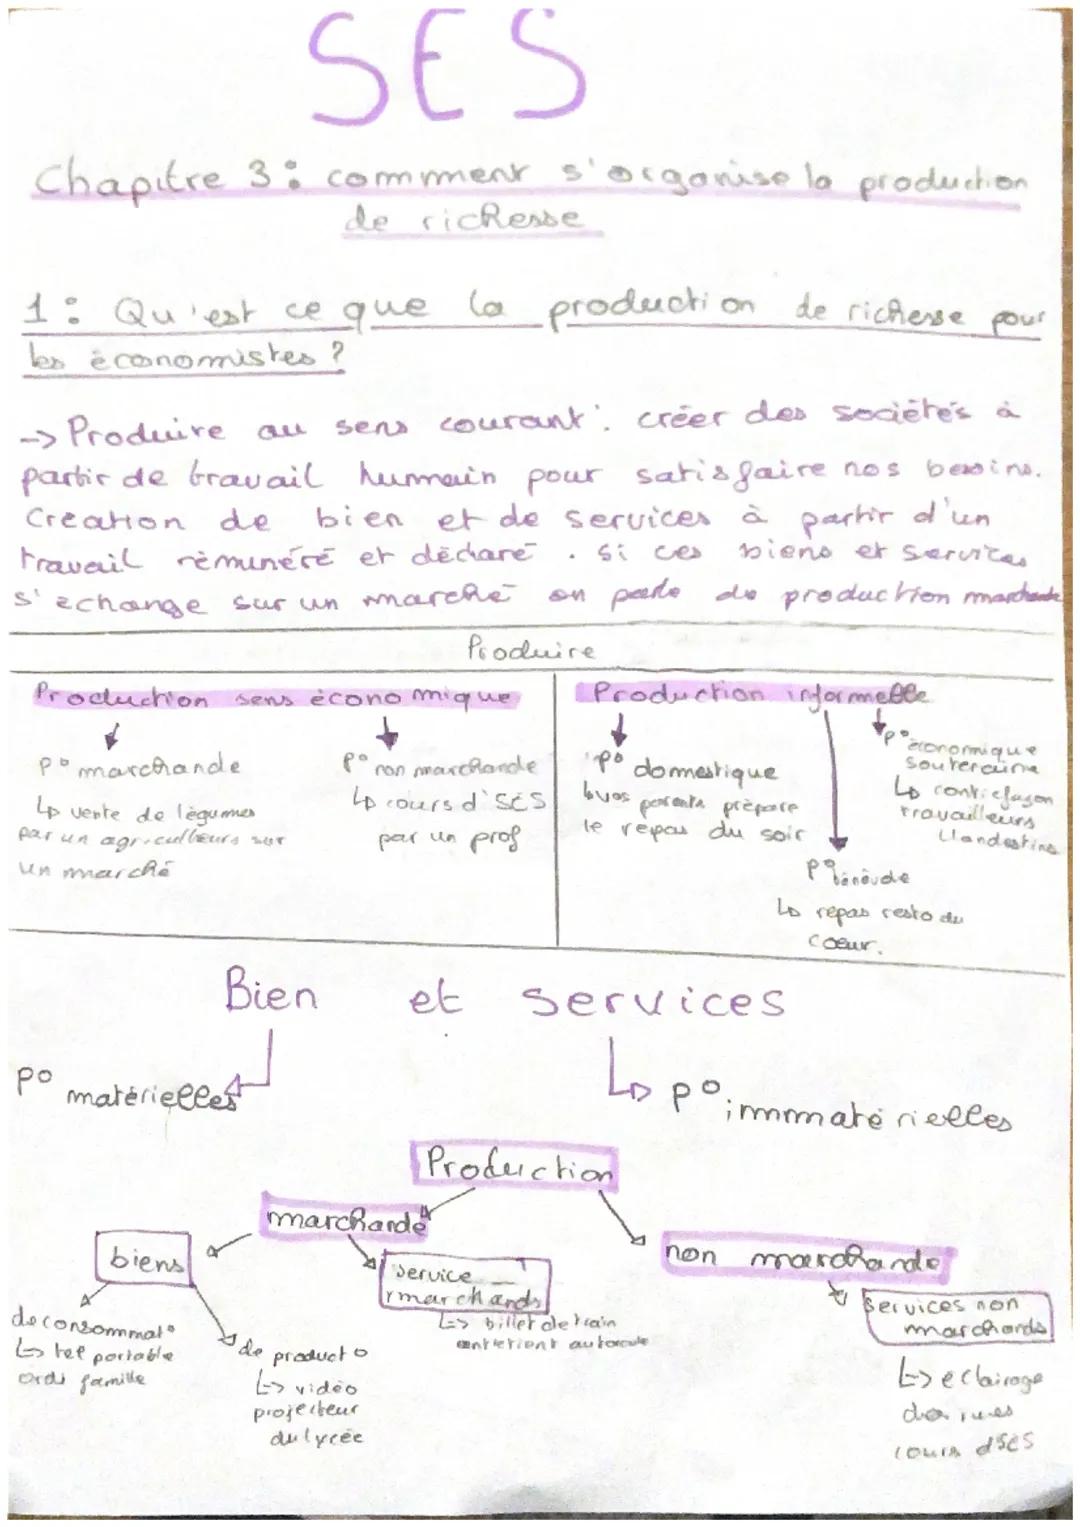 SES
Chapitre 3 : comment s'organise la production
de richesse
1 : Qu'est ce que la production de richesse pour
les économistes ?
-> Produire au sens courant : créer des sociétés à
partir de travail humain pour satisfaire nos besoins.
Création de bien et de services à partir d'un
travail rémunéré et déclaré. Si ces biens et services
s'échange sur un marché on parle de production marchande
Produire
Production sens économique
Production informelle
p° marchande
↳ vente de légumes
par un agriculteurs sur
un marché
p° non marchande
↳ cours d'SES
par un prof
p° domestique
↳ vos parents prépare
le repas du soir
p° économique
souteraine
↳ contrefaçon
travailleurs
clandestins
p° bénévole
↳ repas resto du
coeur.
Bien et services
p° matérielles
p° immatérielles
Production
marchande
non marchande
biens
service
marchands
services non
marchands
de consommat°
↳ tel portable
ordi famille
de product°
↳ vidéo
projecteur
du lycée
↳ billet de train
entretient
↳ éclairage
des rues
cours d'SES